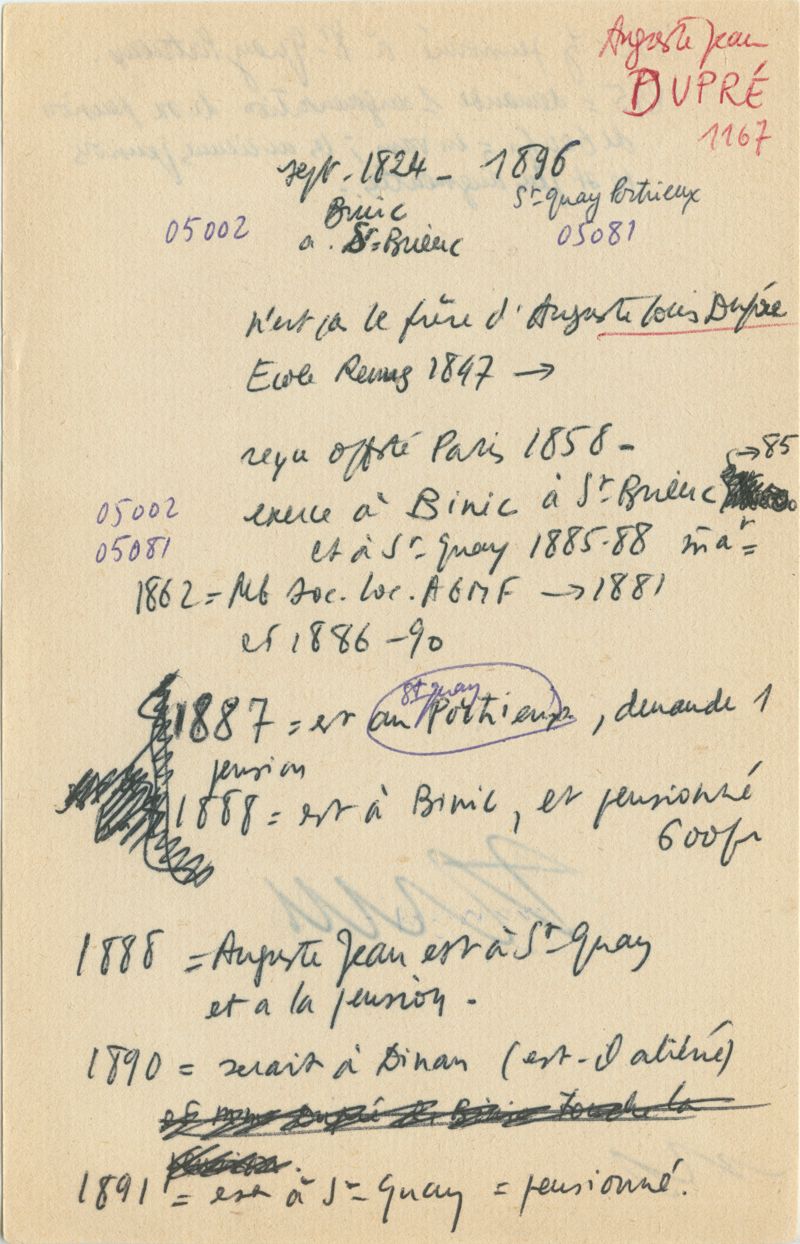 Auguste Jean
DUPRÉ
1167
sept. 1824 - 1896
Binic St-Quay Portrieux
05002 a. St-Brieuc 05081
n'est pas le frère d'Auguste Louis Dupré
Ecole Rennes 1847 →
reçu offté Paris 1858 -
→ 85
05002 exerce à Binic à St Brieuc
05081 et à St-Quay 1885-88
1862 = Mb Soc. Loc. AGMF → 1881
et 1886 - 90
St Quay
1887 = est au Portrieux, demande 1
pension
1888 = est à Binic, et pensionné
600 fr
1888 = Auguste Jean est à St-Quay
et a la pension -
1890 = serait à Dinan (est-il aliéné)
1891 = est à St-Quay = pensionné.